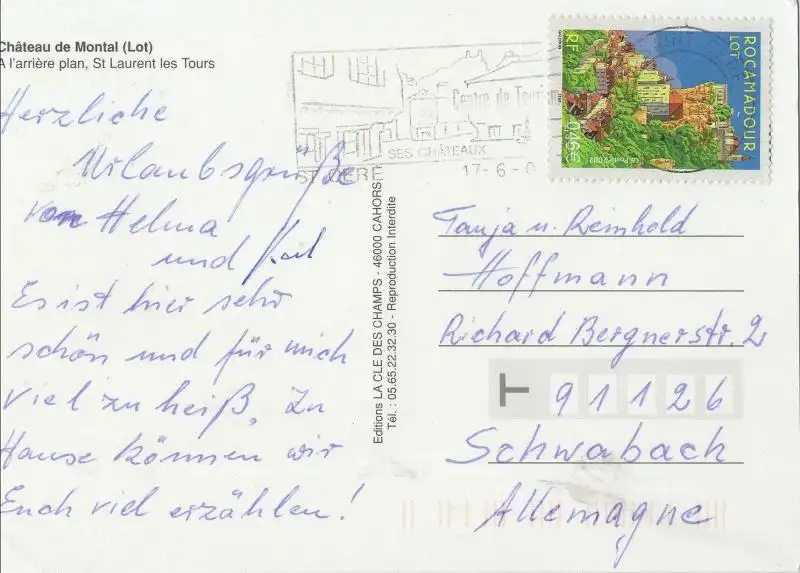 Château de Montal (Lot)
A l'arrière plan, St Laurent les Tours
Herzliche
Urlaubsgrüße
von Helma
und Karl
Es ist hier sehr
schön und für mich
viel zu heiß. Zu
Hause können wir
Euch viel erzählen!
Editions LA CLE DES CHAMPS - 46000 CAHORS
Tél. : 05.65.22.32.30 - Reproduction Interdite
Centre de Tourisme
SES CHÂTEAUX
17-6-0
ROCAMADOUR
LOT
RF
0,46€
La Poste 2002
Tanja u. Reinhold
Hoffmann
Richard Bergnerstr. 2
T 91126
Schwabach
Allemagne